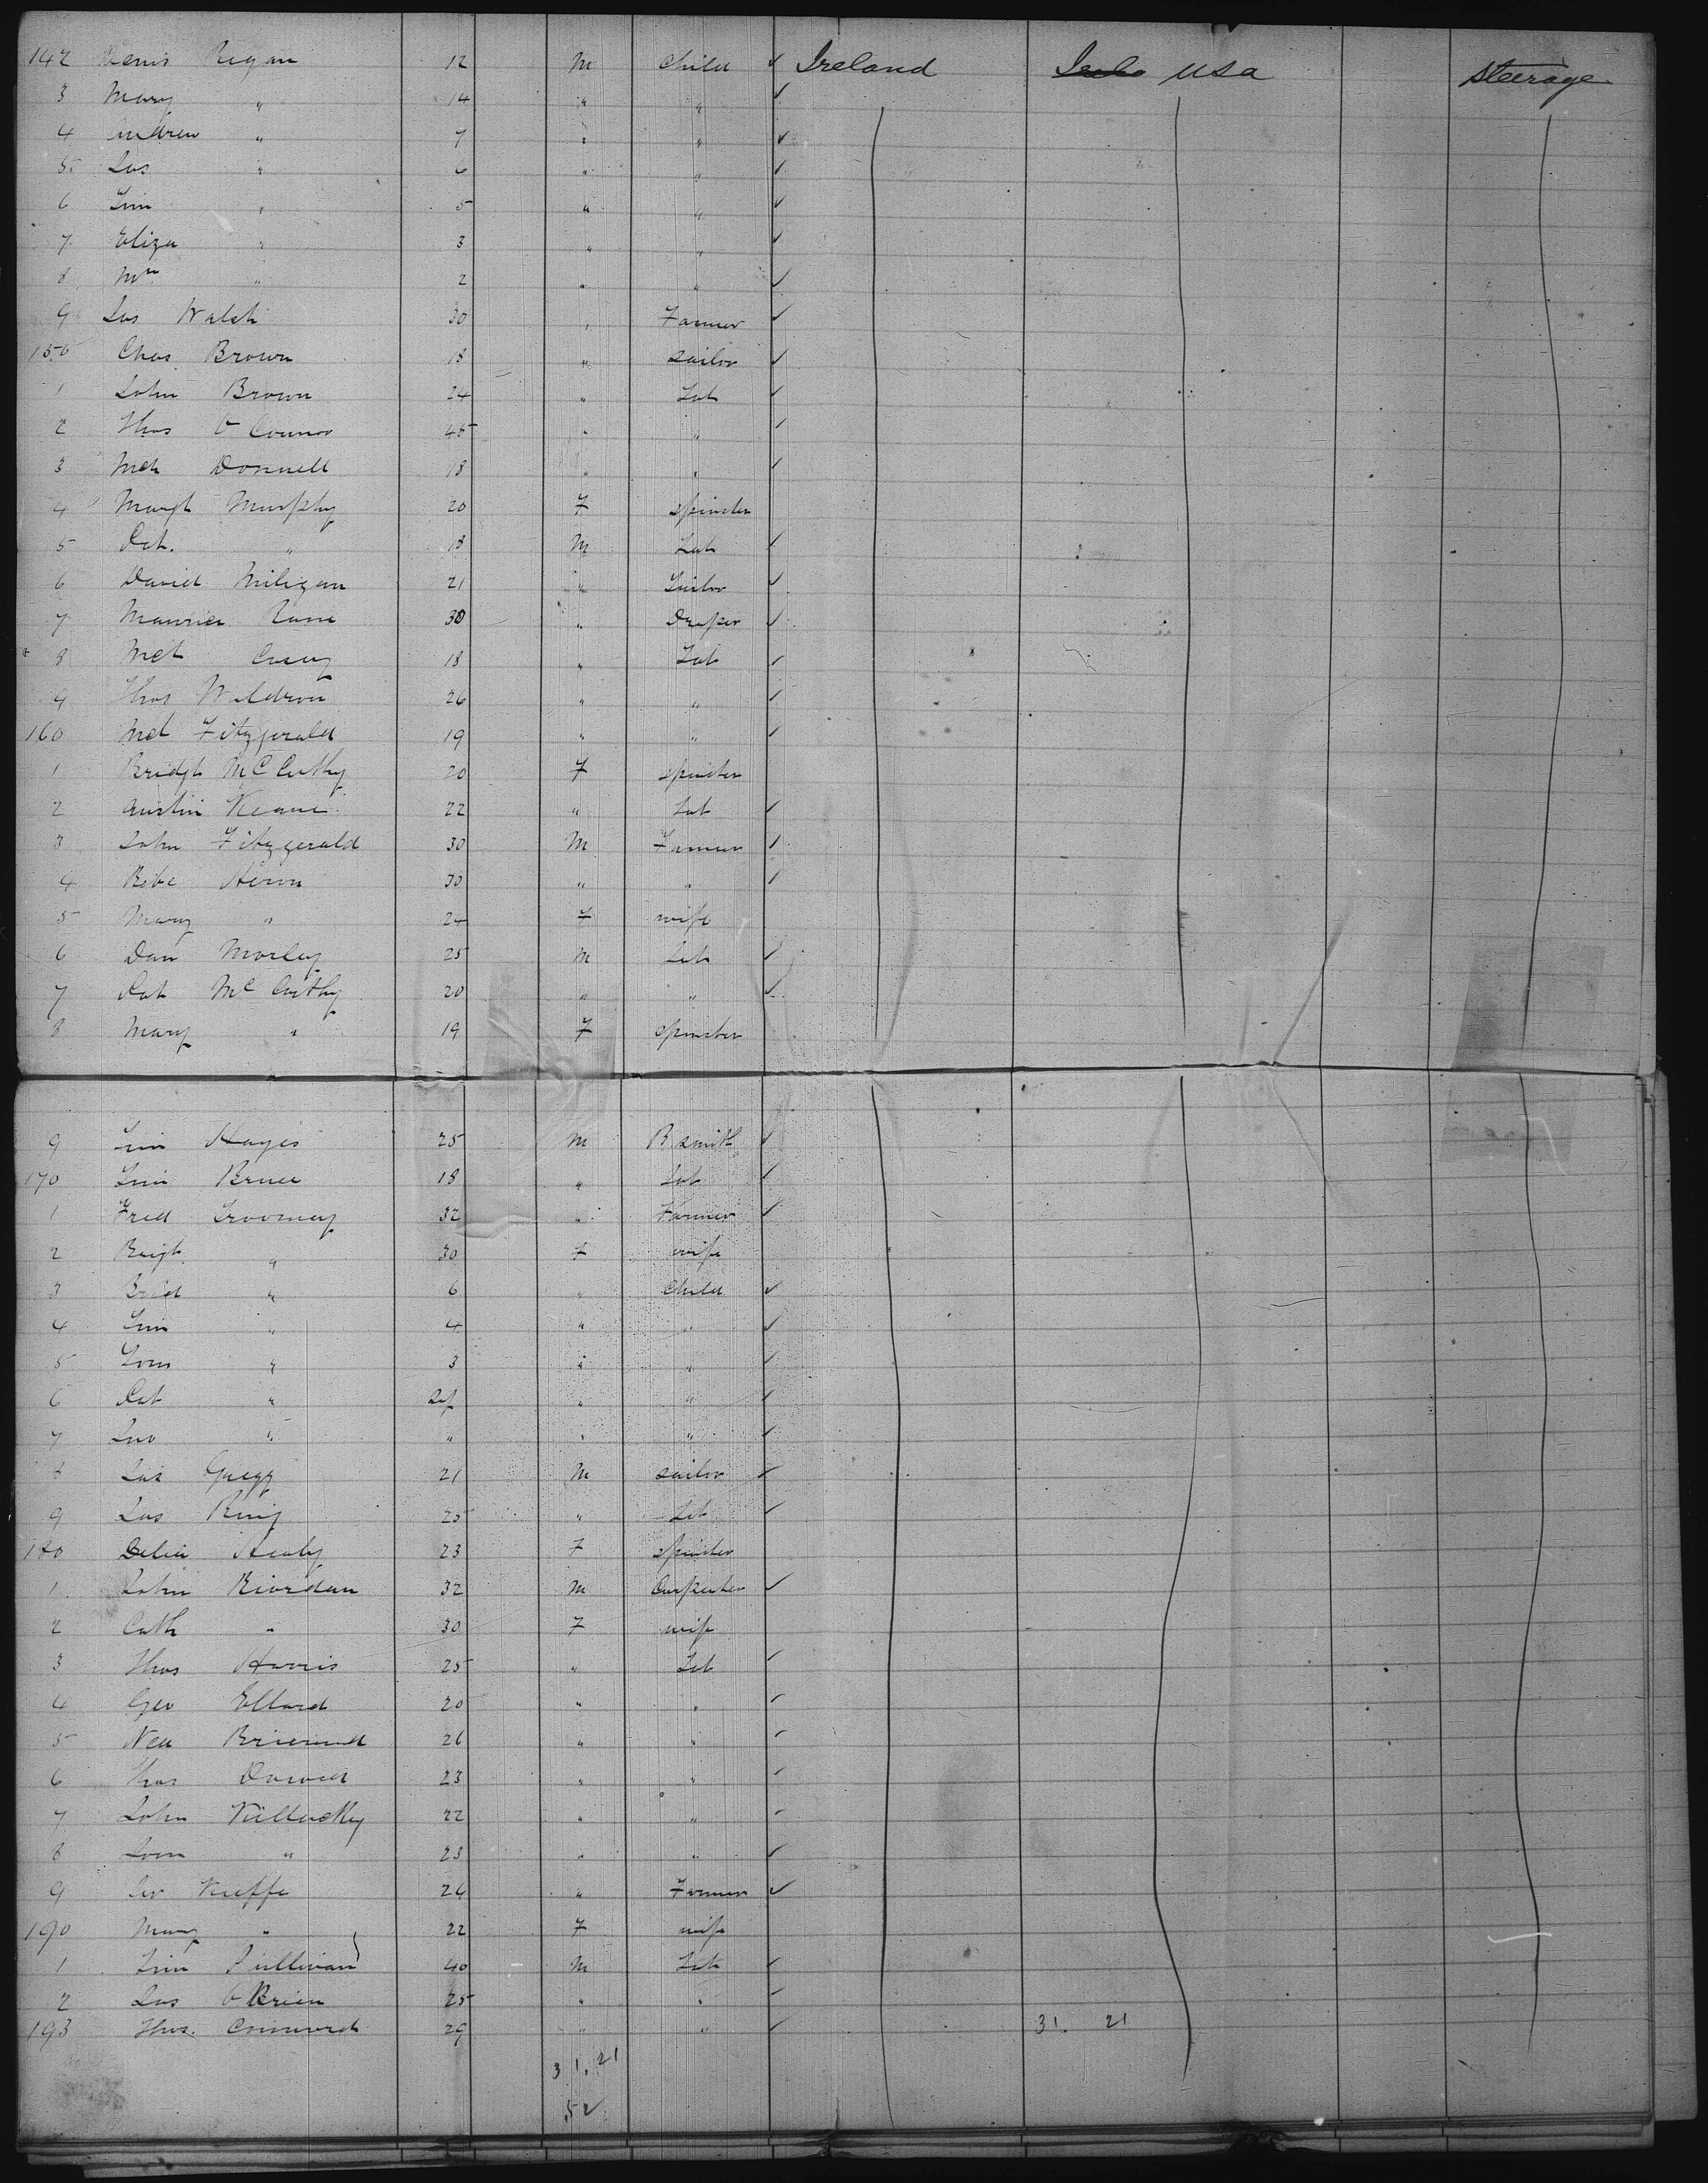 142 Denis Regan 12 M Child ✓ Ireland USA Steerage
3 Mary " 14 " " ✓
4 Andrew " 7 " " ✓
5 Jas " 6 " " ✓
6 Jim " 5 " " ✓
7 Eliza " 3 " " ✓
8 " 2 " " ✓
9 Jas Walsh 30 " Farmer ✓
150 Chas Brown 18 " Sailor ✓
1 John Brown 24 " Lab ✓
2 Thos O Connor 45 " " ✓
3 Mch Donnell 18 " " ✓
4 Margt Murphy 20 F Spinster
5 Pat. " 18 M Lab ✓
6 David Miligan 21 " ✓
7 Maurice 30 " Draper ✓
8 18 " Lab ✓
9 Thos Waldron 26 " " ✓
160 Fitzgerald 19 " " ✓
1 Bridgt McCarthy 20 F Spinster
2 Austin Keane 22 " Lab ✓
3 John Fitzgerald 30 M Farmer ✓
4 30 " " ✓
5 Mary " 24 F wife
6 Dan Morley 25 M Lab ✓
7 Pat McCarthy 20 " " ✓
8 Mary " 19 F Spinster
9 Jim Hayes 25 M B smith ✓
170 Jim Bruce 18 " Lab ✓
1 Fred 32 " Farmer ✓
2 " 30 F wife
3 " 6 " Child ✓
4 Jim " 4 " " ✓
5 Tom " 3 " " ✓
6 Pat " Inf " " ✓
7 Jno " " " " ✓
8 Jas Gregg 21 M Sailor ✓
9 Jas King 25 " Lab ✓
180 Delia Healy 23 F Spinster
1 John Riordan 32 M Carpenter ✓
2 Cath " 30 F wife
3 Thos Harris 25 " Lab ✓
4 Geo Ellard 20 " " ✓
5 26 " " ✓
6 Thos 23 " " ✓
7 John 22 " " ✓
8 " 23 " " ✓
9 Keeffe 24 " Farmer ✓
190 Mary " 22 F wife
1 Jim Sullivan 40 M Lab ✓
2 Jas O Brien 25 " " ✓
193 Thos. 29 " " ✓ 31. 21
31. 21
52